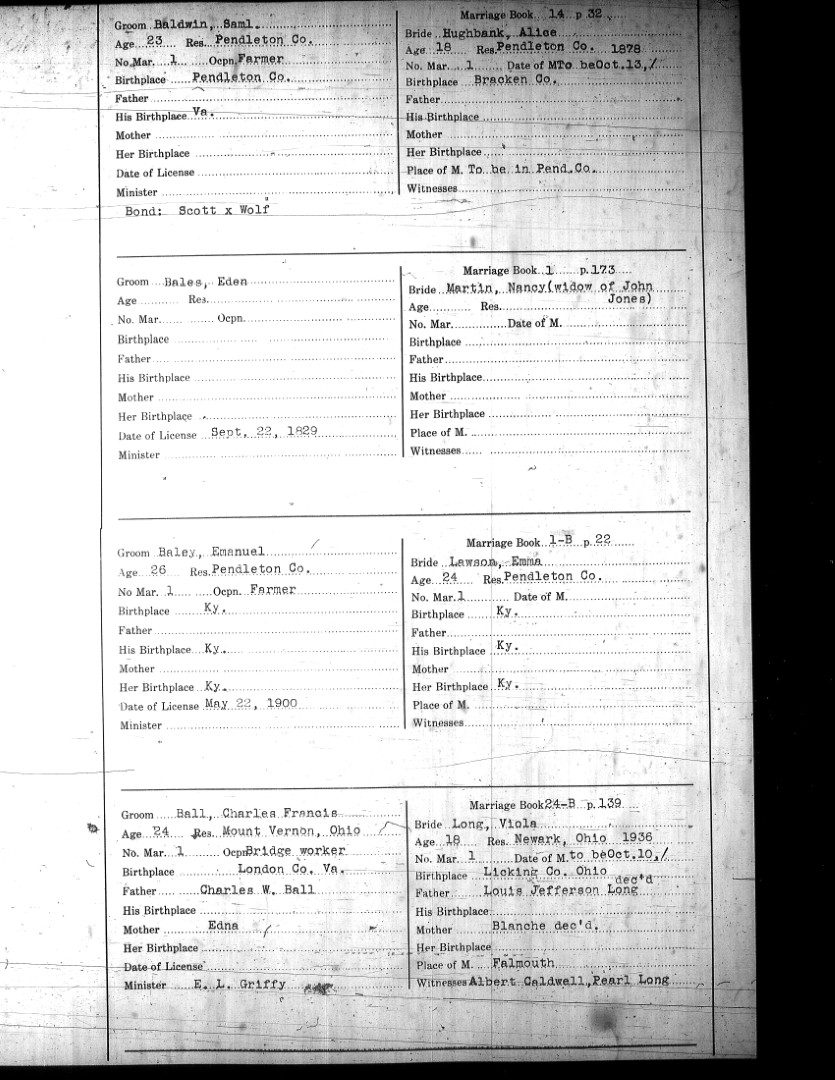 Groom Baldwin, Saml.
Age 23 Res. Pendleton Co.
No. Mar. 1 Ocpn. Farmer
Birthplace Pendleton Co.
Father
His Birthplace Va.
Mother
Her Birthplace
Date of License
Minister
Bond: Scott x Wolf
Marriage Book 14 p 32
Bride Hughbank, Alice
Age 18 Res. Pendleton Co. 1878
No. Mar. 1 Date of M To be Oct. 13, /
Birthplace Bracken Co.
Father
His Birthplace
Mother
Her Birthplace
Place of M. To be in Pend. Co.
Witnesses
Groom Bales, Eden
Age Res.
No. Mar. Ocpn.
Birthplace
Father
His Birthplace
Mother
Her Birthplace
Date of License Sept. 22, 1829
Minister
Marriage Book 1 p. 173
Bride Martin, Nancy (widow of John
Jones)
Age Res.
No. Mar. Date of M.
Birthplace
Father
His Birthplace
Mother
Her Birthplace
Place of M.
Witnesses
Groom Baley, Emanuel
Age 26 Res. Pendleton Co.
No Mar. 1 Ocpn. Farmer
Birthplace Ky.
Father
His Birthplace Ky.
Mother
Her Birthplace Ky.
Date of License May 22, 1900
Minister
Marriage Book 1-B p. 22
Bride Lawson, Emma
Age 24 Res. Pendleton Co.
No. Mar. 1 Date of M.
Birthplace Ky.
Father
His Birthplace Ky.
Mother
Her Birthplace Ky.
Place of M.
Witnesses
Groom Ball, Charles Francis
Age 24 Res. Mount Vernon, Ohio
No. Mar. 1 Ocpn Bridge worker
Birthplace London Co. Va.
Father Charles W. Ball
His Birthplace
Mother Edna
Her Birthplace
Date of License
Minister E. L. Griffy
Marriage Book 24-B p. 139
Bride Long, Viola
Age 18 Res. Newark, Ohio 1936
No. Mar. 1 Date of M. to be Oct. 10, /
Birthplace Licking Co. Ohio
dec'd
Father Louis Jefferson Long
His Birthplace
Mother Blanche dec'd.
Her Birthplace
Place of M. Falmouth
Witnesses Albert Caldwell, Pearl Long